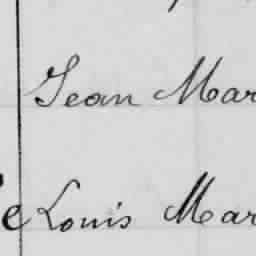 Jean Mar
e Louis Mar